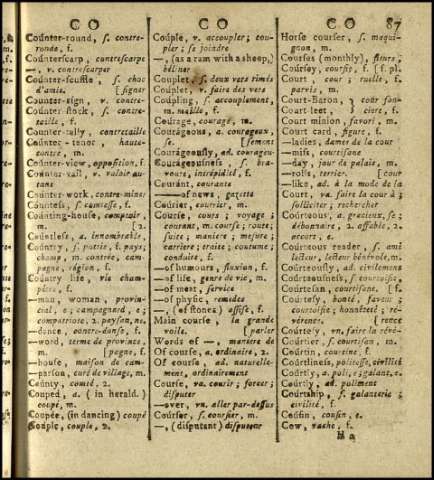 C O
C O
C O
87
Counter-round, s. contre-
ronde, f.
Counterscarp, contrescarpe
—, v. contrescarper
Counter-scuffle, s. choc
d'amis. [signer
Counter-sign, v. contre-
Counter-stock, s. contre-
taille, f.
Counter-tally, contretaille
Counter-tenor, haute-
contre, m.
Counter-view, opposition, f.
Counter-vail, v. valoir au-
tant
Counter-work, contre-miner
Countess, s. comtesse, f.
Counting-house, comptoir,
m. [2.
Countless, a. innombrable,
Country, s. patrie, f. pays;
champ, m. contrée, cam-
pagne, région, f.
Country life, vie cham-
pêtre, f.
— man, woman, provin-
cial, e; campagnard, e;
compatriote, 2. paysan, ne.
—dance, contre-danse, f.
—word, terme de province,
m. [pagne, f.
—house, maison de cam-
—parson, curé de village, m.
County, comté, 2.
Couped, a. (in herald.)
coupé, m.
Coupée, (in dancing) coupé
Couple, couple, 2.
Couple, v. accoupler; cou-
pler; se joindre
—, (as a ram with a sheep,)
béliner
Couplet, s. deux vers rimés
Couplet, v. faire des vers
Coupling, s. accouplement,
m. maille, f.
Courage, courage, m.
Courageous, a. courageux,
se. [sement
Courageously, ad. courageu-
Courageousness, s. bra-
voure, intrépidité, f.
Courant, courante
——of news, gazette
Courier, courrier, m.
Course, cours; voyage;
courant, m. course; route;
suite; manière; mesure;
carrière; traite; coutume;
conduite, f.
—of humours, fluxion, f.
—of life, genre de vie, m.
—of meat, service
—of physic, remedes
—, (of stones) assise, f.
Main course, la grande
voile. [parler
Words of —, maniere de
Of course, a. ordinaire, 2.
Of course, ad. naturelle-
ment, ordinairement
Course, va. courir; forcer;
disputer
—over, vn. aller par-dessus
Courser, s. coursier, m.
—, (disputant) disputeur
Horse courser, s. maqui-
gnon, m.
Courses (monthly), fleurs;
Coursey, coursie, f. [f. pl.
Court, s. cour; ruelle, f.
parvis, m.
Court-Baron, } cour fon-
Court leet, } ciere, f.
Court minion, favori, m.
Court card, figure, f.
—ladies, dames de la cour
—miss, courtisane
—day, jour de palais, m.
—rolls, terrier. [cour
—like, ad. à la mode de la
Court, va. faire la cour à;
solliciter; rechercher
Courteous, a. gracieux, se;
débonnaire, 2. affable, 2.
accort, e.
Courteous reader, s. ami
lecteur, lecteur bénévole, m.
Courteously, ad. civilement
Courteousness, s. courtoisie,
Courtesan, courtisane, f. [f.
Courtesy, bonté, faveur;
courtoisie; honnêteté; ré-
vérence. [rence
Courtesy, vn. faire la révé-
Courtier, s. courtisan, m.
Courtin, courtine, f.
Courtliness, politesse, civilité
Courtly, a. poli, e; galant, e.
Courtly, ad. poliment
Courtship, s. galanterie;
civilité, f.
Cousin, cousin, e.
Cow, vache, f.
H 2